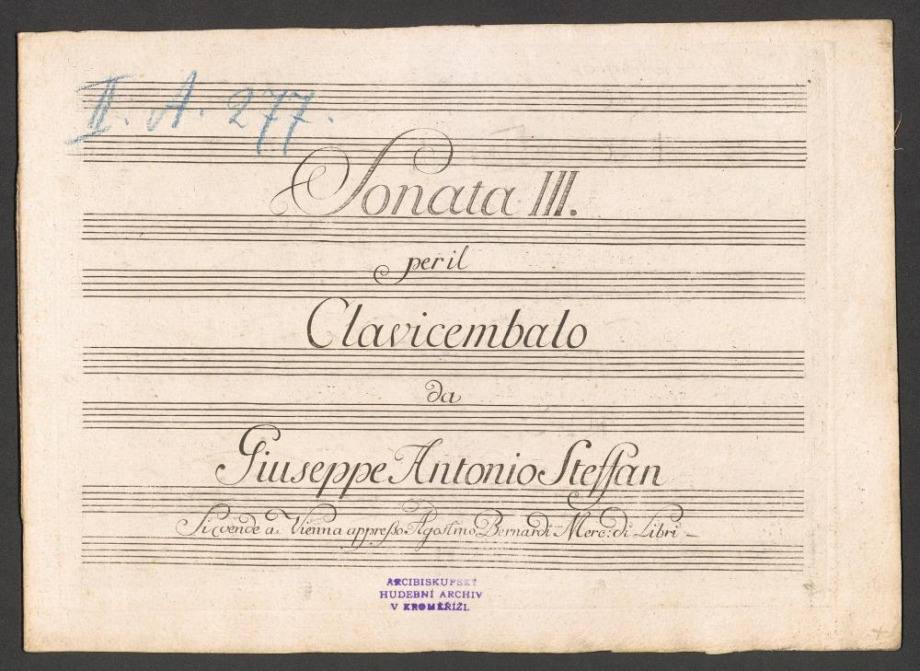 II. A. 277.
Sonata III.
per il
Clavicembalo
da
Giuseppe Antonio Steffan
Si vende a Vienna appreßo Agostino Bernardi Merc: di Libri
ARCIBISKUPSKÝ
HUDEBNÍ ARCHIV
V KROMĚŘÍŽI.